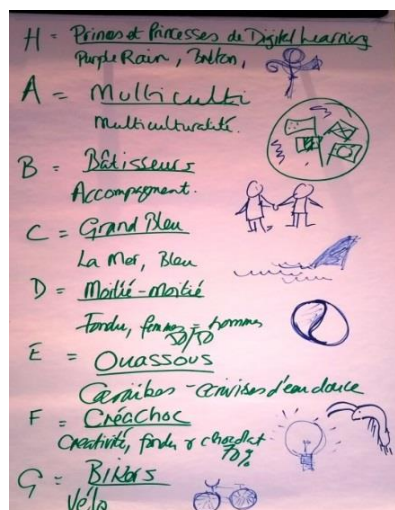 H = Princes et Princesses de Digital Learning
Purple Rain, Breton,
A = Multiculti
Multiculturalité.
B = Bâtisseurs
Accompagnent.
C = Grand Bleu
La Mer, Bleu
D = Moitié-Moitié
Fondu, femmes = hommes
50/50
E = Ouassous
Caraïbes - écrivisses d'eau douce
F = CréaChoc
Créativité, fondu & chocolat
70%
G = BIKers
Vélo